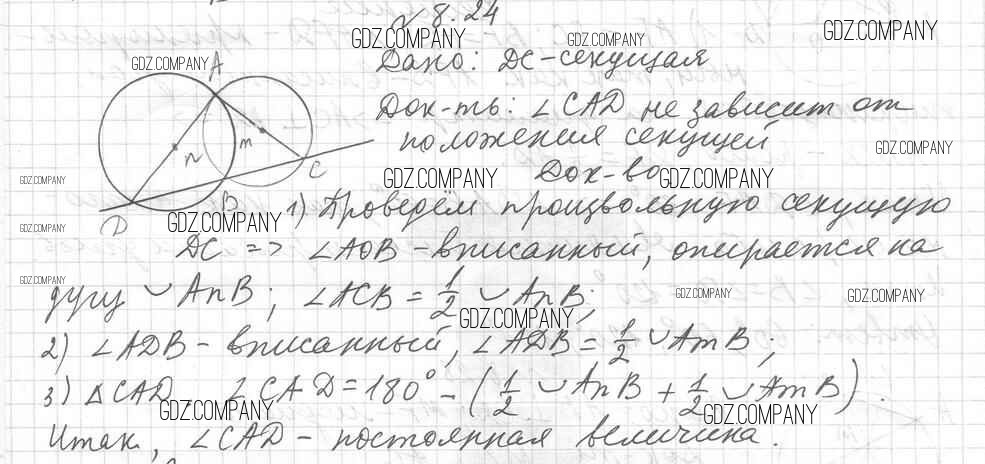 √ 8.24
GDZ.COMPANY GDZ.COMPANY GDZ.COMPANY
Дано: DC - секущая
GDZ.COMPANY A
Док-ть: ∠CAD не зависит от
положения секущей
n m C
GDZ.COMPANY
Док-во
GDZ.COMPANY GDZ.COMPANY GDZ.COMPANY
D B
1) Проведём произвольную секущую
GDZ.COMPANY GDZ.COMPANY
DC => ∠AOB - вписанный, опирается на
дугу ◡ AnB; ∠ACB = 1/2 ◡ AnB;
GDZ.COMPANY GDZ.COMPANY GDZ.COMPANY
GDZ.COMPANY
2) ∠ADB - вписанный, ∠ADB = 1/2 ◡ AmB;
3) △CAD ∠CAD = 180° - (1/2 ◡ AnB + 1/2 ◡ AmB).
GDZ.COMPANY GDZ.COMPANY
Итак, ∠CAD - постоянная величина.